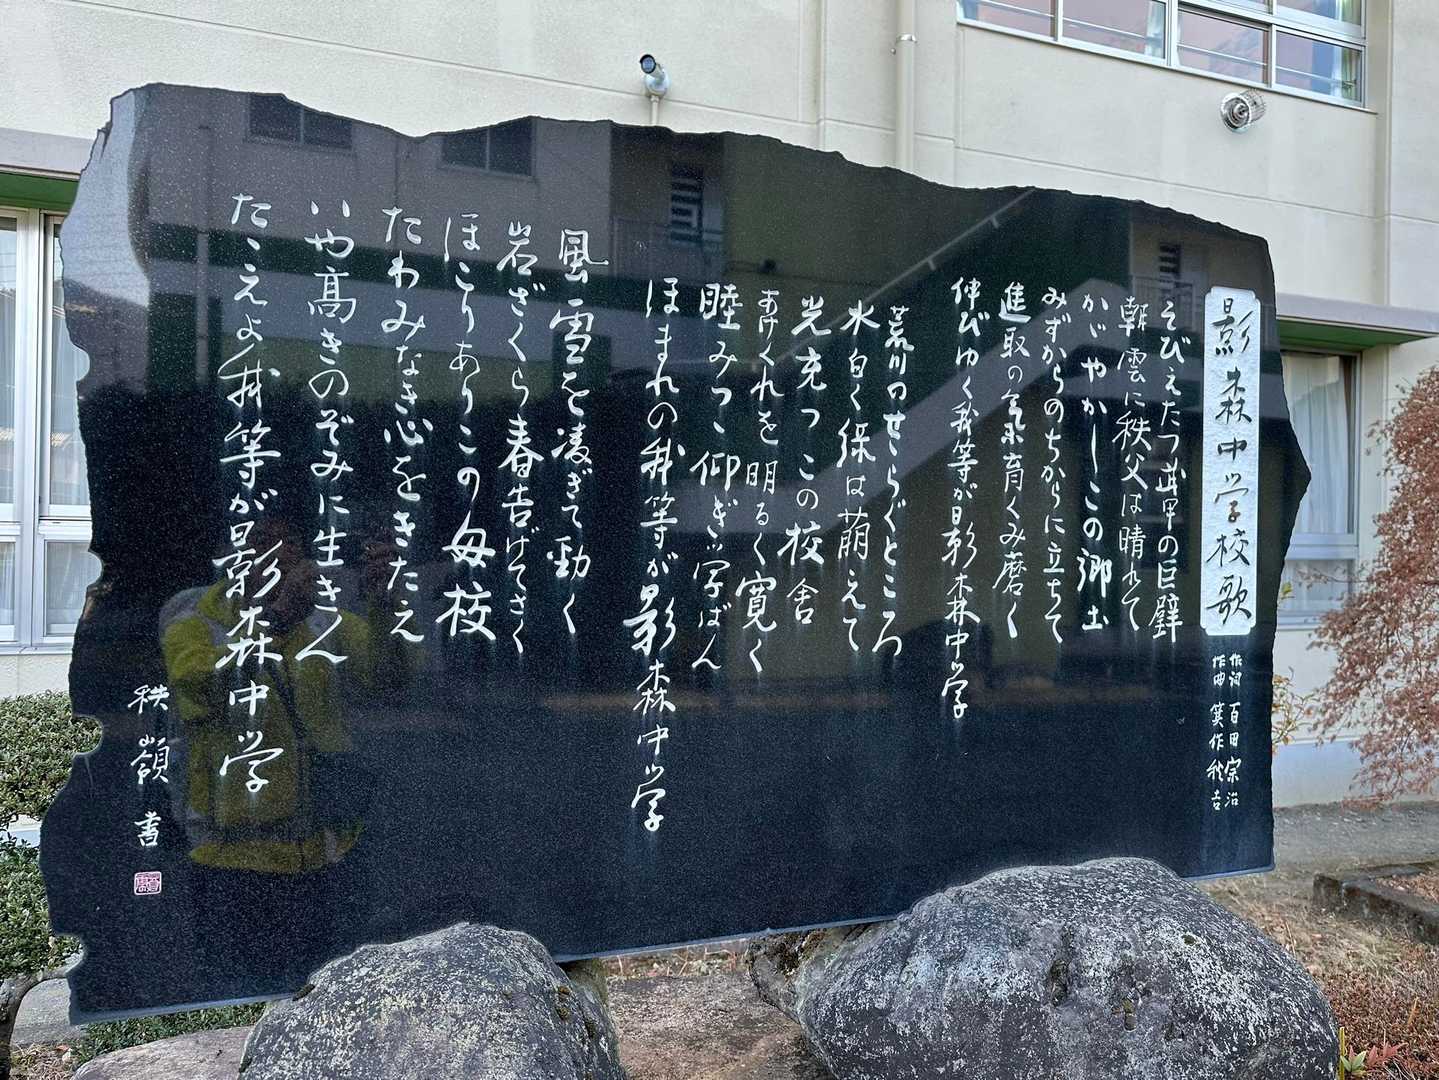 影森中学校歌
作詞 百田宗治
作曲 箕作秋吉
そびえたつ武甲の巨壁
朝雲に秩父は晴れて
かゞやかしこの郷土
みずからのちからに立ちて
進取の気宇育くみ磨く
伸びゆく我等が影森中学
荒川のせゝらぐところ
水白く緑は萌えて
光充つこの校舎
あけくれを明るく寛く
睦みつゝ仰ぎ学ばん
ほまれの我等が影森中学
風雪を凌ぎて勁く
岩ざくら春告げてさく
ほこりありこの母校
たわみなき心をきたえ
いや高きのぞみに生きん
たゝえよ我等が影森中学
秩嶺 書